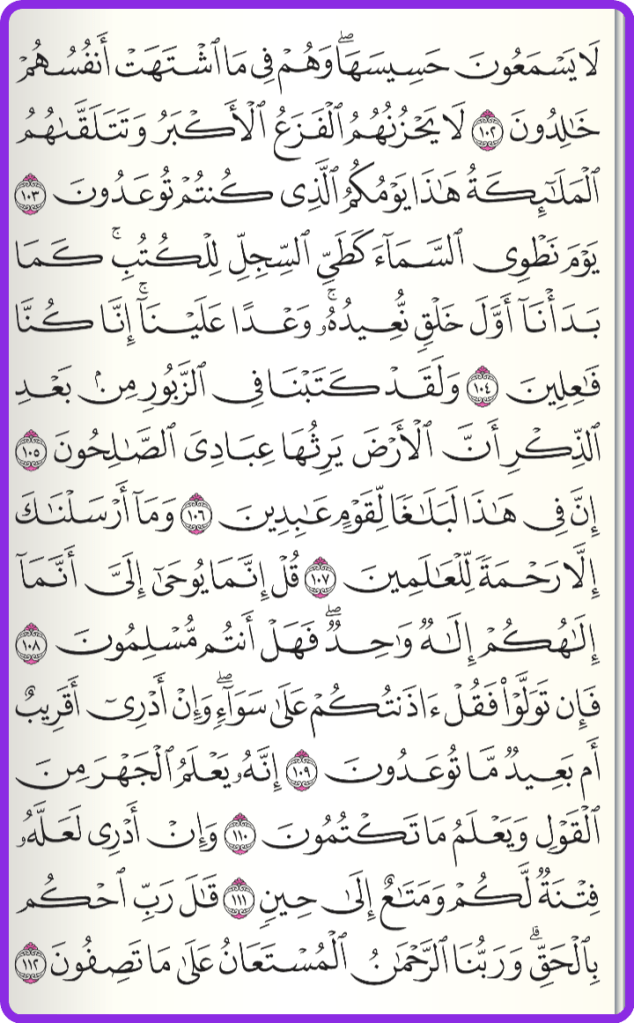 لَا يَسْمَعُونَ حَسِيسَهَا ۖ وَهُمْ فِى مَا ٱشْتَهَتْ أَنفُسُهُمْ
خَـٰلِدُونَ ١٠٢ لَا يَحْزُنُهُمُ ٱلْفَزَعُ ٱلْأَكْبَرُ وَتَتَلَقَّىٰهُمُ
ٱلْمَلَـٰٓئِكَةُ هَـٰذَا يَوْمُكُمُ ٱلَّذِى كُنتُمْ تُوعَدُونَ ١٠٣
يَوْمَ نَطْوِى ٱلسَّمَآءَ كَطَىِّ ٱلسِّجِلِّ لِلْكُتُبِ ۚ كَمَا
بَدَأْنَآ أَوَّلَ خَلْقٍ نُّعِيدُهُۥ ۚ وَعْدًا عَلَيْنَآ ۚ إِنَّا كُنَّا
فَـٰعِلِينَ ١٠٤ وَلَقَدْ كَتَبْنَا فِى ٱلزَّبُورِ مِنۢ بَعْدِ
ٱلذِّكْرِ أَنَّ ٱلْأَرْضَ يَرِثُهَا عِبَادِىَ ٱلصَّـٰلِحُونَ ١٠٥
إِنَّ فِى هَـٰذَا لَبَلَـٰغًا لِّقَوْمٍ عَـٰبِدِينَ ١٠٦ وَمَآ أَرْسَلْنَـٰكَ
إِلَّا رَحْمَةً لِّلْعَـٰلَمِينَ ١٠٧ قُلْ إِنَّمَا يُوحَىٰٓ إِلَىَّ أَنَّمَآ
إِلَـٰهُكُمْ إِلَـٰهٌ وَٰحِدٌ ۖ فَهَلْ أَنتُم مُّسْلِمُونَ ١٠٨
فَإِن تَوَلَّوْا۟ فَقُلْ ءَاذَنتُكُمْ عَلَىٰ سَوَآءٍ ۖ وَإِنْ أَدْرِىٓ أَقَرِيبٌ
أَم بَعِيدٌ مَّا تُوعَدُونَ ١٠٩ إِنَّهُۥ يَعْلَمُ ٱلْجَهْرَ مِنَ
ٱلْقَوْلِ وَيَعْلَمُ مَا تَكْتُمُونَ ١١٠ وَإِنْ أَدْرِى لَعَلَّهُۥ
فِتْنَةٌ لَّكُمْ وَمَتَـٰعٌ إِلَىٰ حِينٍ ١١١ قَـٰلَ رَبِّ ٱحْكُم
بِٱلْحَقِّ ۗ وَرَبُّنَا ٱلرَّحْمَـٰنُ ٱلْمُسْتَعَانُ عَلَىٰ مَا تَصِفُونَ ١١٢